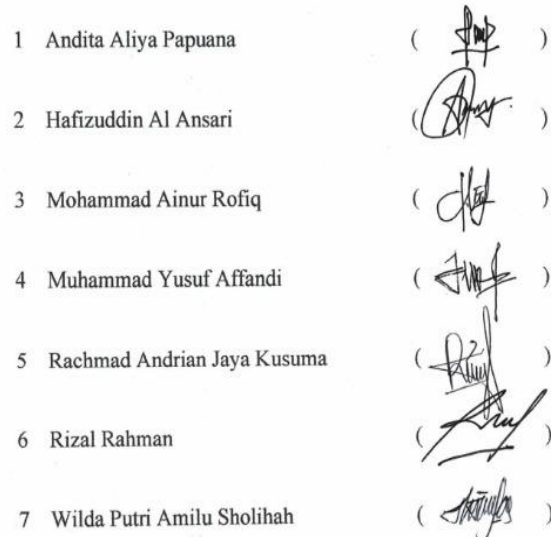 1 Andita Aliya Papuana ( )
2 Hafizuddin Al Ansari ( )
3 Mohammad Ainur Rofiq ( )
4 Muhammad Yusuf Affandi ( )
5 Rachmad Andrian Jaya Kusuma ( )
6 Rizal Rahman ( )
7 Wilda Putri Amilu Sholihah ( )